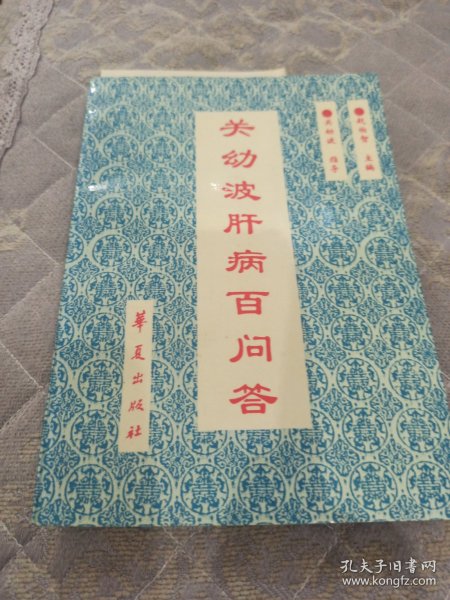 关幼波肝病百问答
赵伯智 主编
关幼波 指导
華夏出版社
孔夫子旧书网
www.kongfz.com